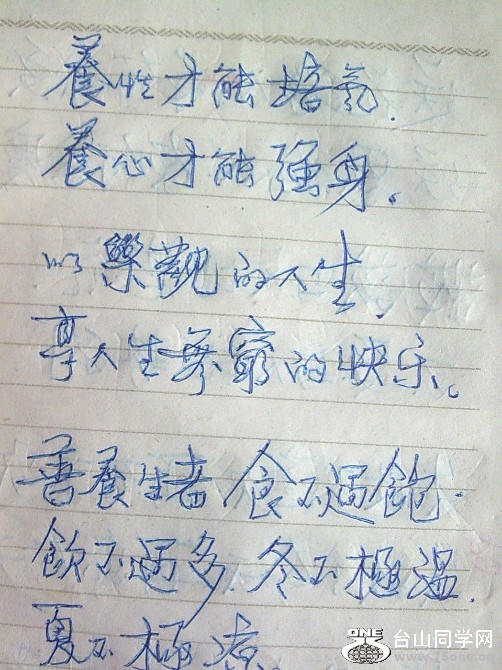 養性才能培氣.
養心才能强身.
以樂觀的人生.
享人生無窮的快乐。
善養生者,食不過飽.
飲不過多.冬不極温.
夏不極凉.
ONE 台山同学网